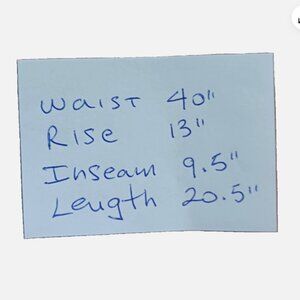 Waist 40"
Rise 13"
Inseam 9.5"
Length 20.5"